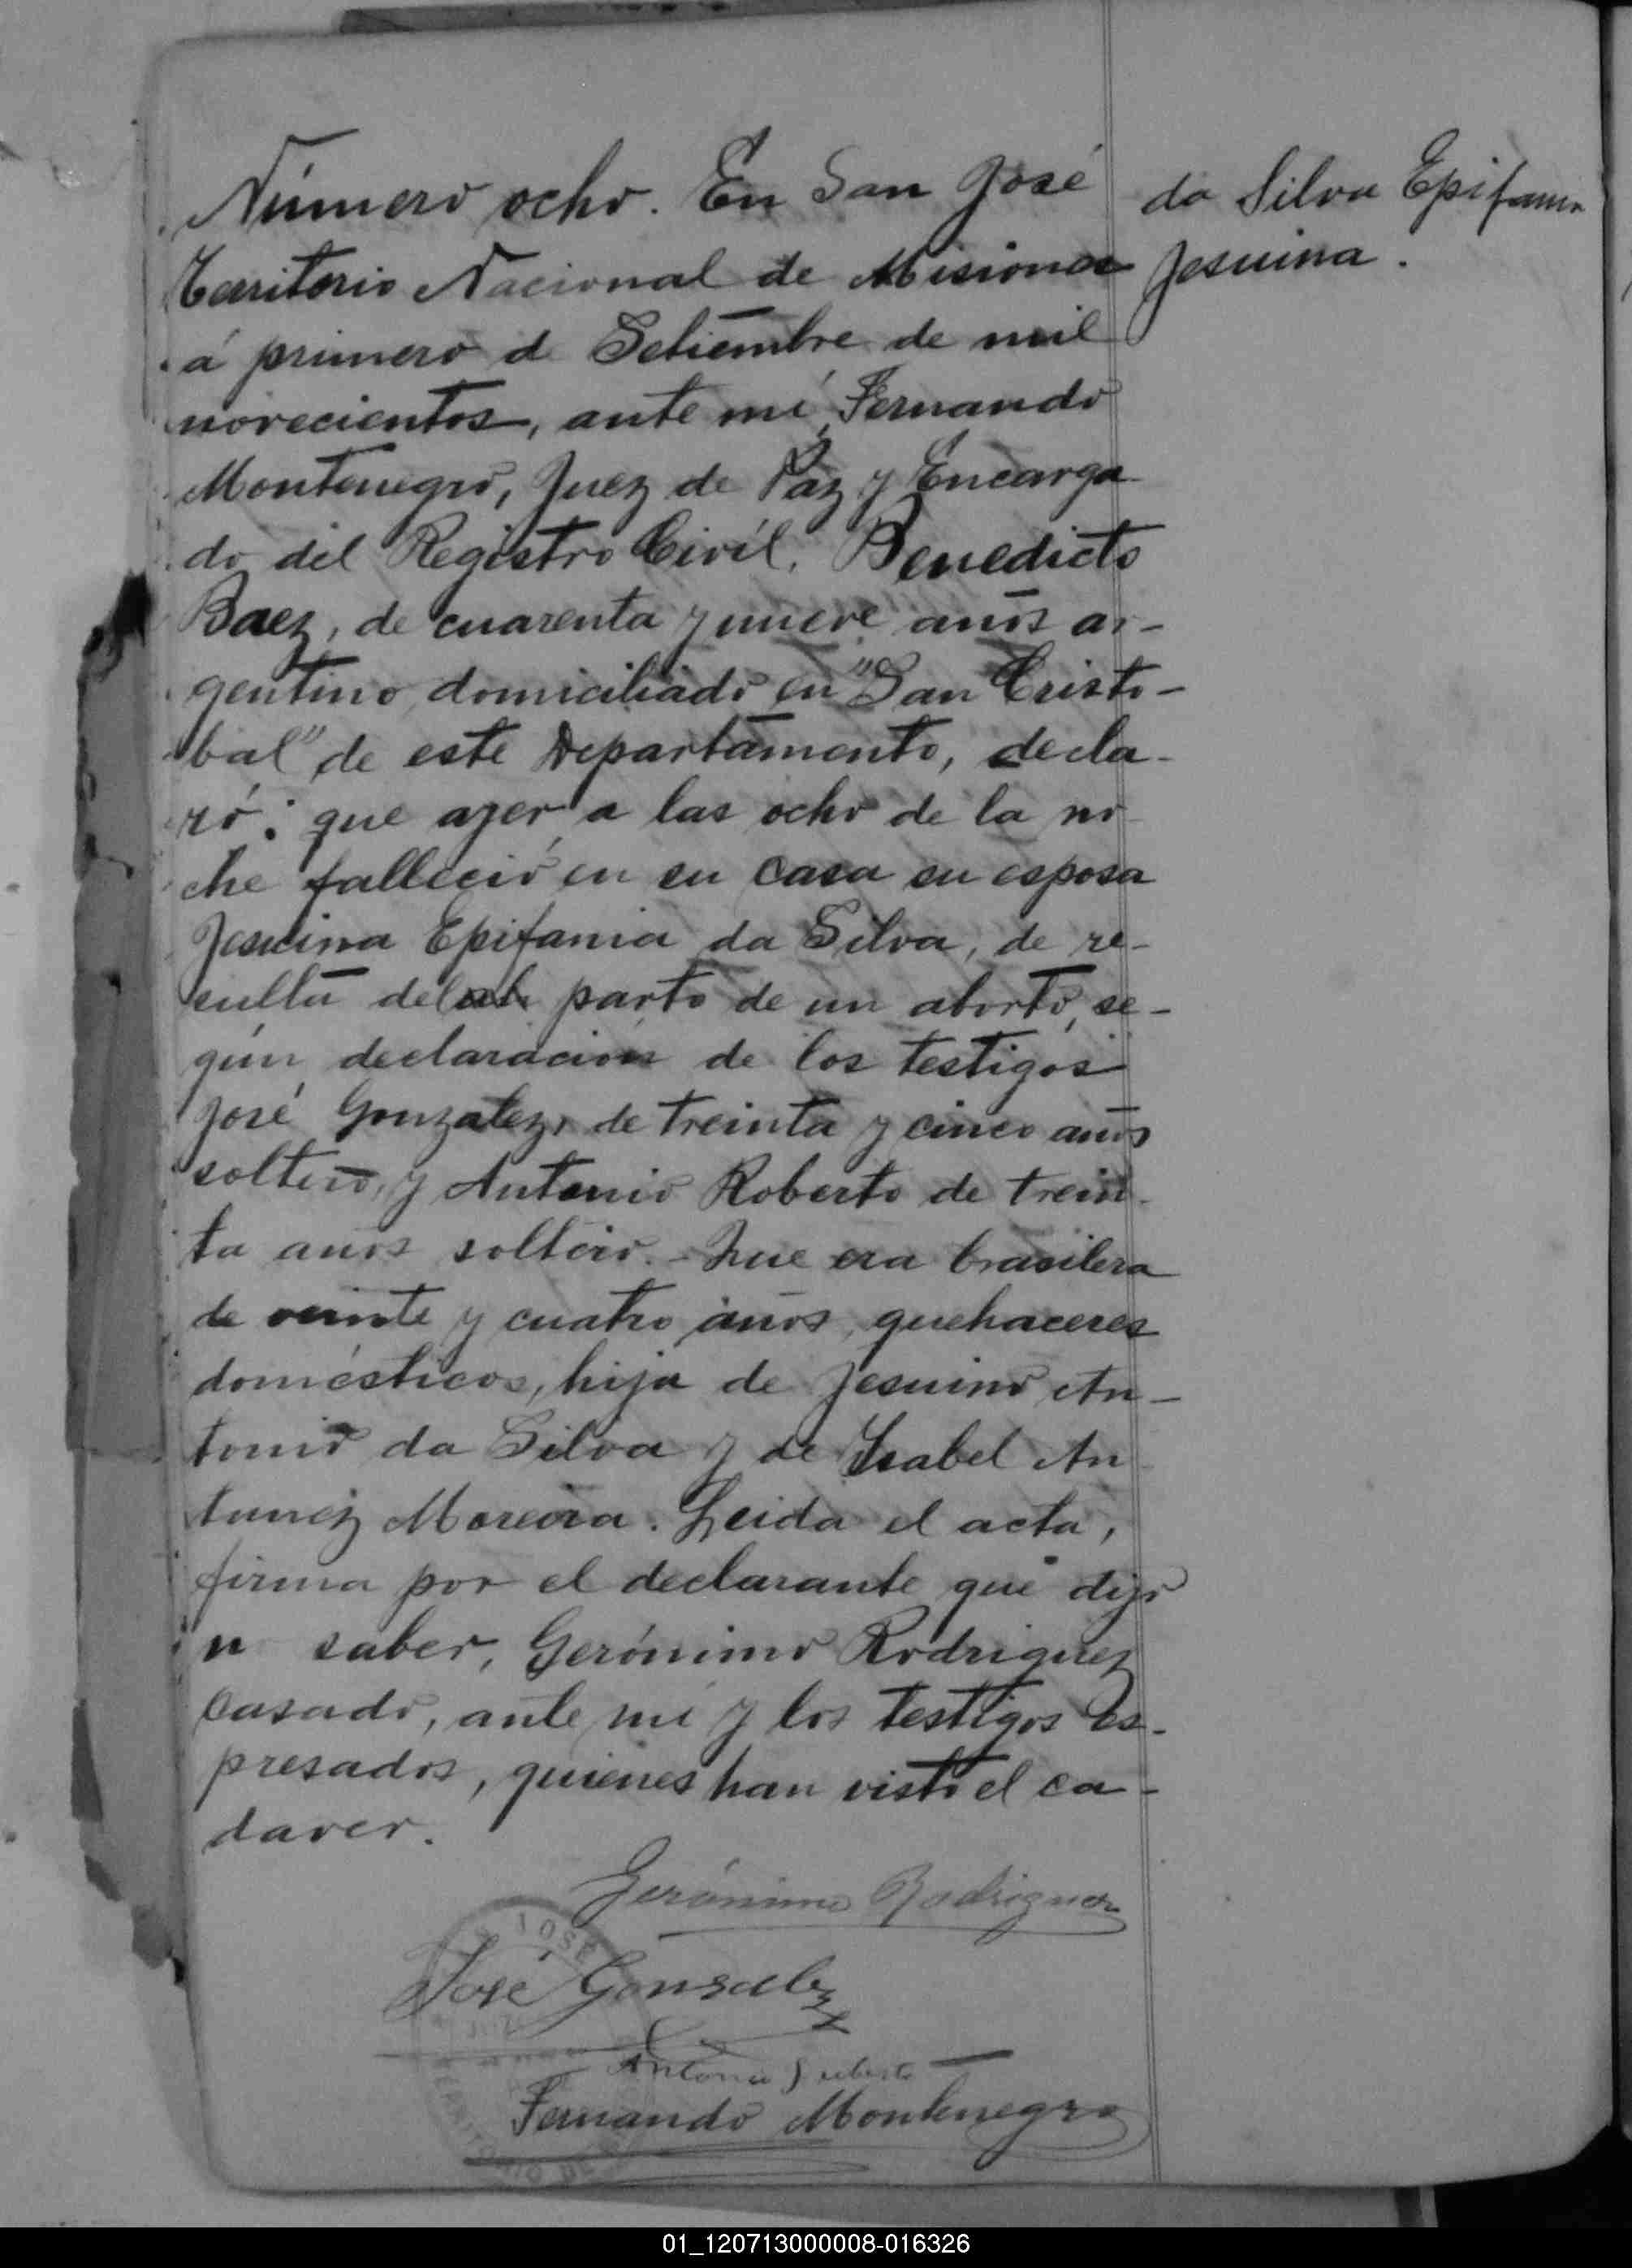 Número ocho. En San José
da Silva Epifania
Jesuina.
Territorio Nacional de Misiones
á primero d Setiembre de mil
novecientos, ante mí, Fernando
Montenegro, Juez de Paz y Encarga
do del Registro Civíl. Benedicto
Baez, de cuarenta y nueve años ar-
gentino domiciliado en "San Cristo-
bal" de este Departamento, decla-
ró: que ayer a las ocho de la no
che falleció en su casa su esposa
Jesuina Epifania da Silva, de re-
sulta del parto de un aborto, se-
gún declaración de los testigos
José Gonzalez, de treinta y cinco años
soltero, y Antonio Roberto de trein-
ta años soltero. - Que era brasilera
de veinte y cuatro años, quehaceres
domésticos, hija de Jesuino An-
tonio da Silva y de Ysabel An
tunez Moreira. Leida el acta,
firma por el declarante que dijo
n saber, Gerónimo Rodriguez
casado, ante mí y los testigos es-
presados, quienes han visto el ca-
daver.
Gerónimo Rodriguez
José Gonsalez
Antonio
Fernando Montenegro
JOSE
01_120713000008-016326